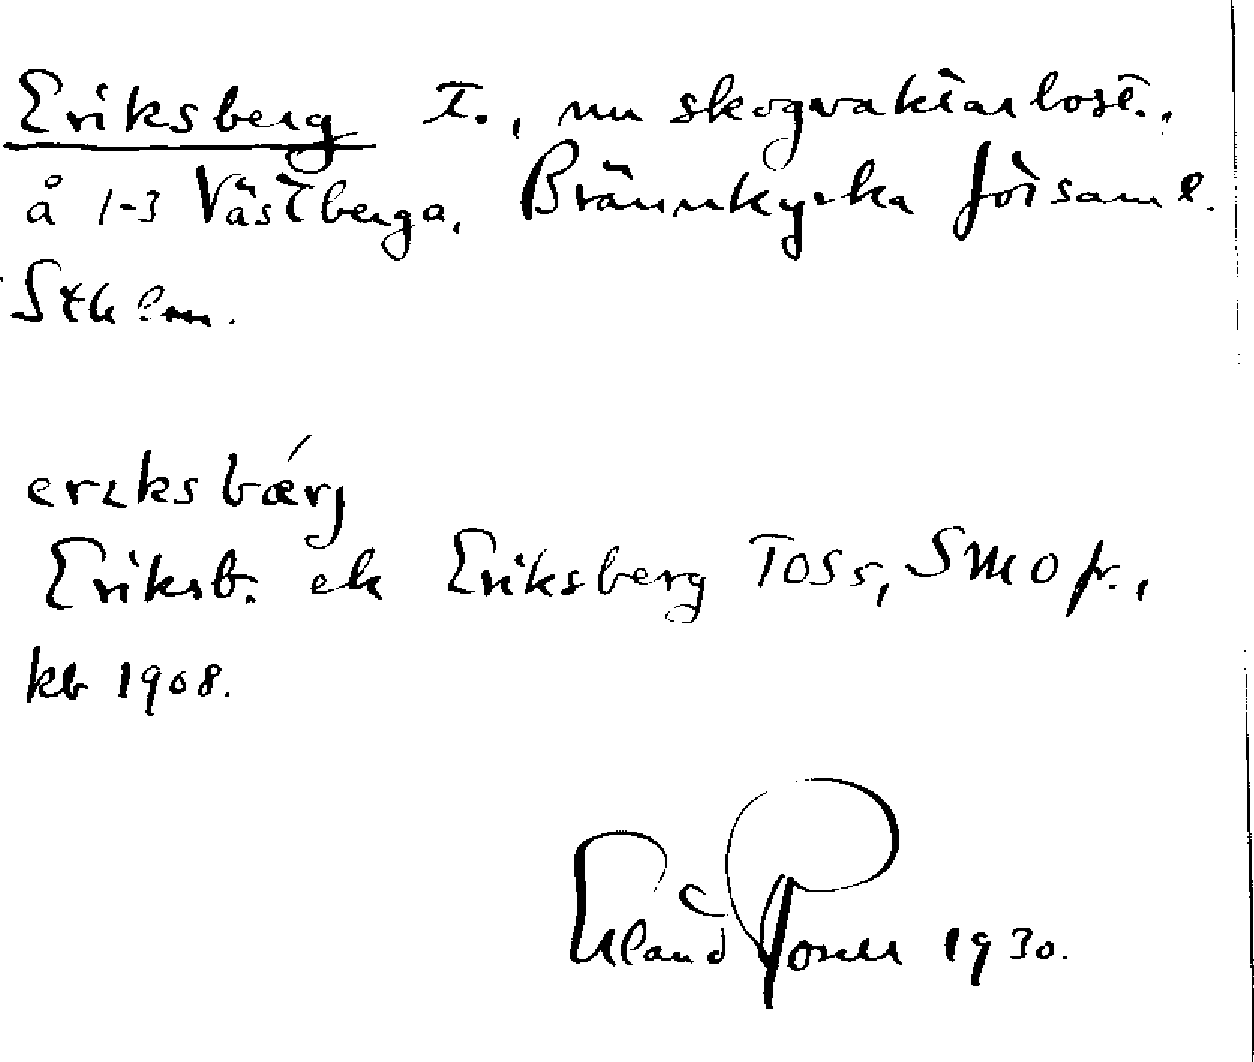 Eriksberg T., nu skogvaktarbost.,
å 1-3 Västberga, Brännkyrka församl.
Sthlm.
erɩksbǽrj
Eriksb. ell Eriksberg TOSS, SMO fr.,
kb 1908.
Erland Rosell 1930.